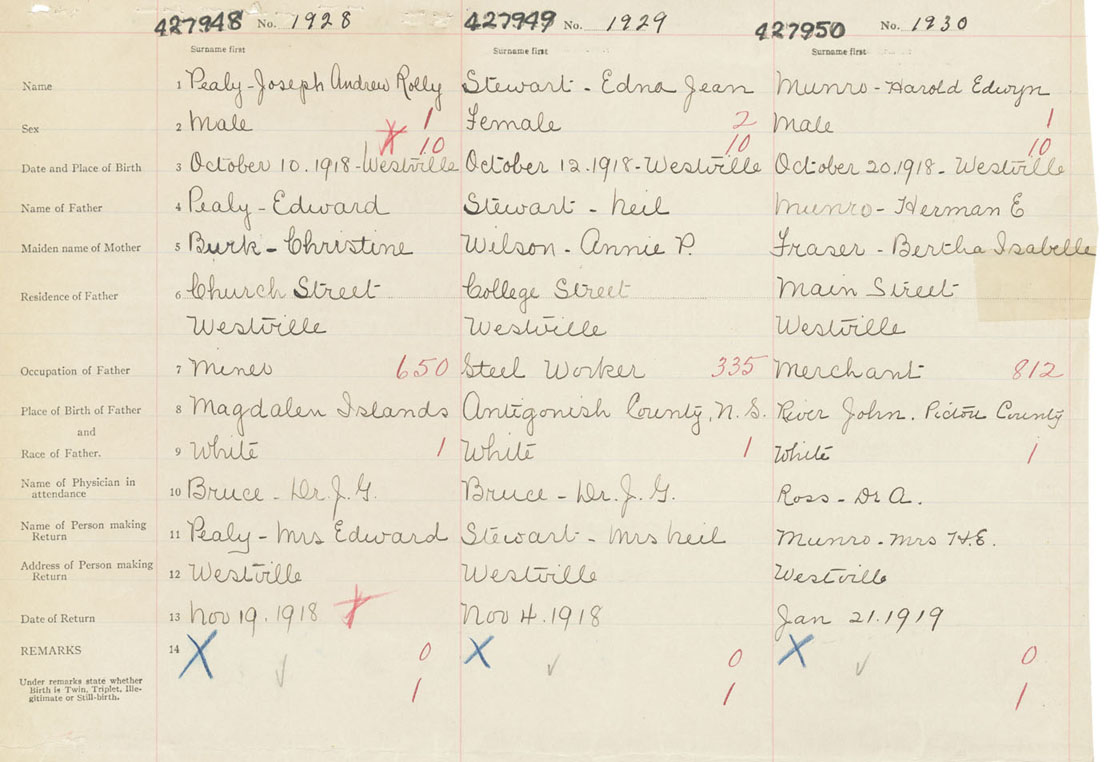 427948 No. 1928 427949 No. 1929 427950 No. 1930
Surname first Surname first Surname first
Name 1 Pealy-Joseph Andrew Rolly Stewart - Edna Jean Munro - Harold Edwyn
Sex 2 Male 1 Female 2 Male 1
10 10 10
Date and Place of Birth 3 October 10.1918-Westville October 12.1918-Westville October 20.1918- Westville
Name of Father 4 Pealy - Edward Stewart - Neil Munro- Herman E
Maiden name of Mother 5 Burk - Christine Wilson - Annie P. Fraser - Bertha Isabelle
Residence of Father 6 Church Street College Street Main Street
Westville Westville Westville
Occupation of Father 7 Miner 650 Steel Worker 335 Merchant 812
Place of Birth of Father 8 Magdalen Islands Antigonish County, N.S. River John. Pictou County
and
Race of Father. 9 White 1 White 1 White 1
Name of Physician in
attendance 10 Bruce - Dr. J. G. Bruce - Dr. J. G. Ross - Dr A.
Name of Person making
Return 11 Pealy - Mrs Edward Stewart - Mrs Neil Munro - Mrs H.E.
Address of Person making
Return 12 Westville Westville Westville
Date of Return 13 Nov 19.1918 Nov 4.1918 Jan 21.1919
REMARKS 14 X 0 X 0 X 0
Under remarks state whether
Birth is Twin, Triplet, Ille-
gitimate or Still-birth. 1 1 1